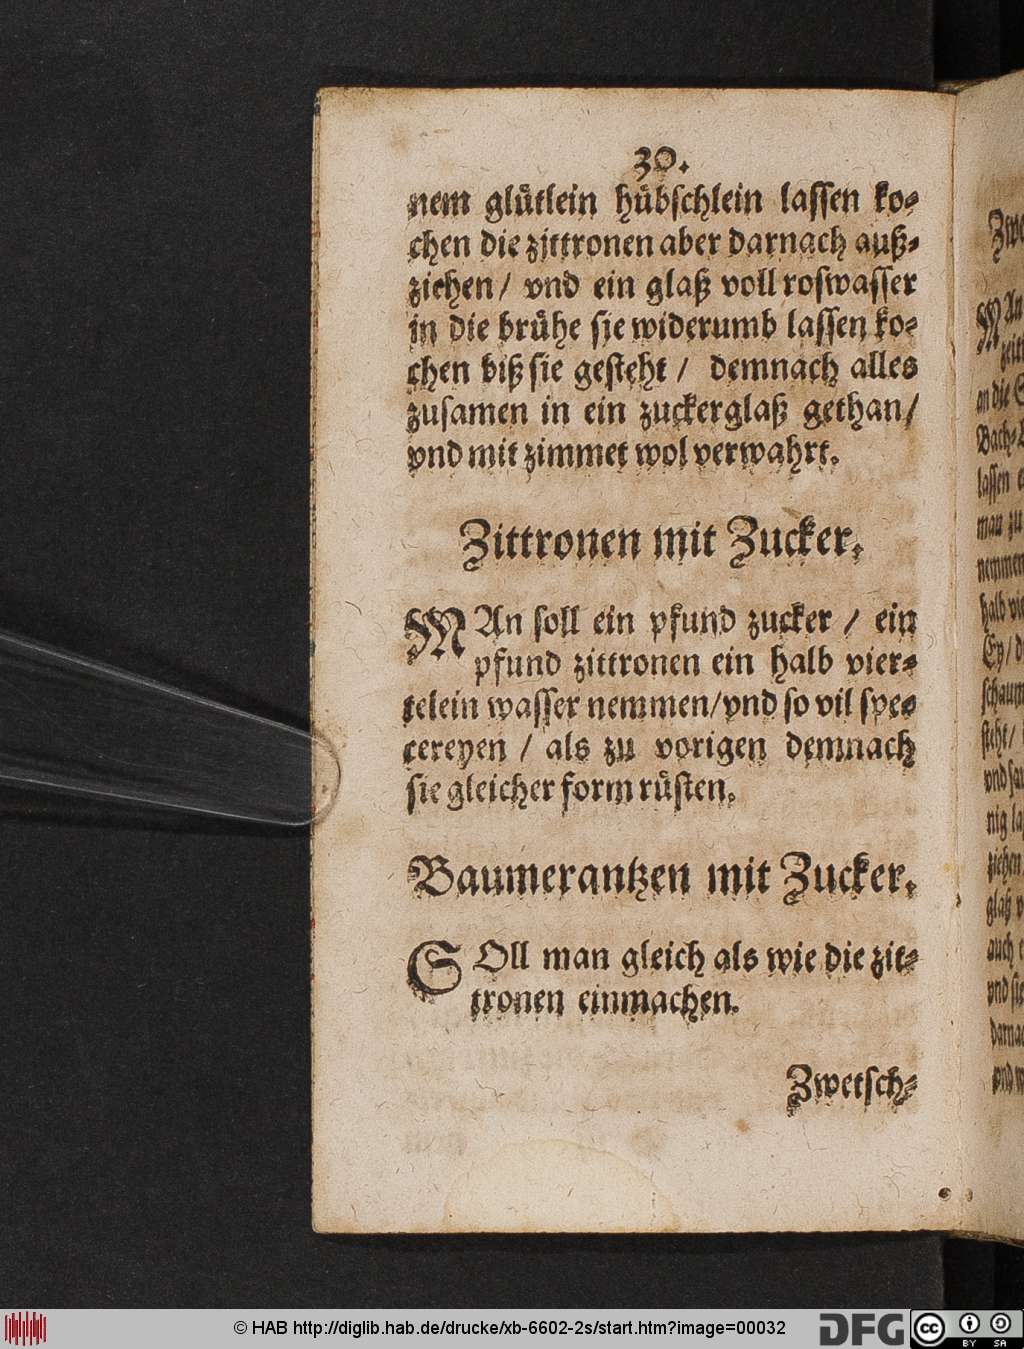 30.
nem glütlein hübschlein lassen ko-
chen die zittronen aber darnach auß-
ziehen / vnd ein glaß voll roswasser
in die brühe sie widerumb lassen ko-
chen biß sie gesteht / demnach alles
zusamen in ein zuckerglaß gethan /
vnd mit zimmet wol verwahrt.
Zittronen mit Zucker.
MAn soll ein pfund zucker / ein
pfund zittronen ein halb vier-
telein wasser nemmen / vnd so vil spe-
cereyen / als zu vorigen demnach
sie gleicher form rüsten.
Baumerantzen mit Zucker.
SOll man gleich als wie die zit-
tronen einmachen.
Zwetsch-
© HAB http://diglib.hab.de/drucke/xb-6602-2s/start.htm?image=00032
DFG
cc BY SA